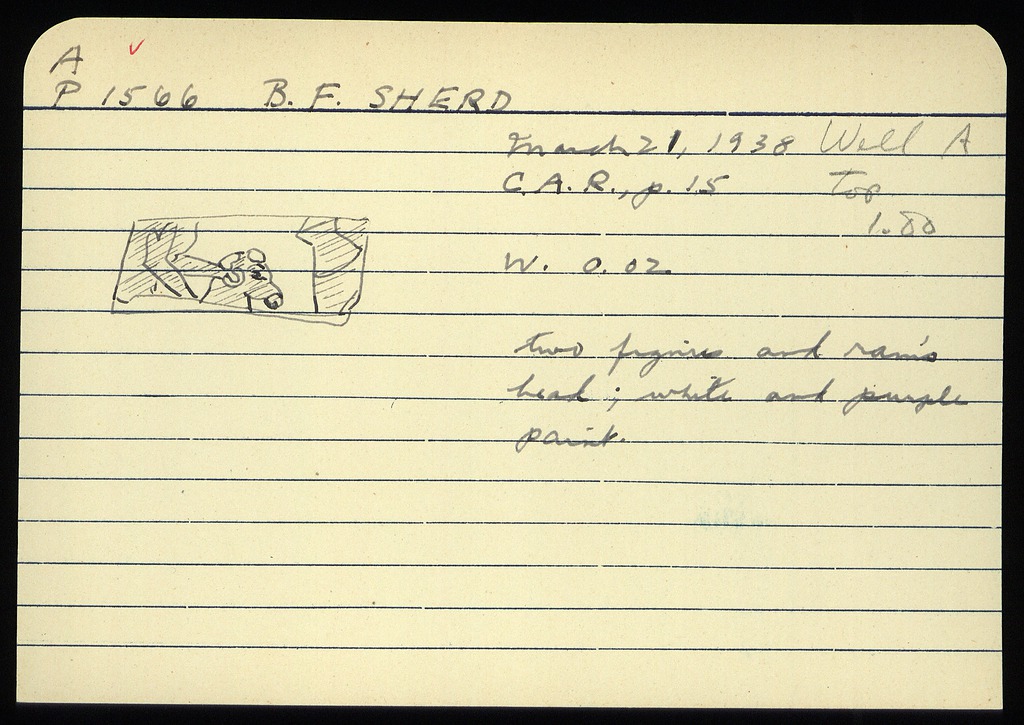 A
P 1566 B. F. SHERD
March 21, 1938 Well A
C.A.R., p. 15 Top
1.80
W. 0.02
two figures and ram's
head; white and purple
paint.